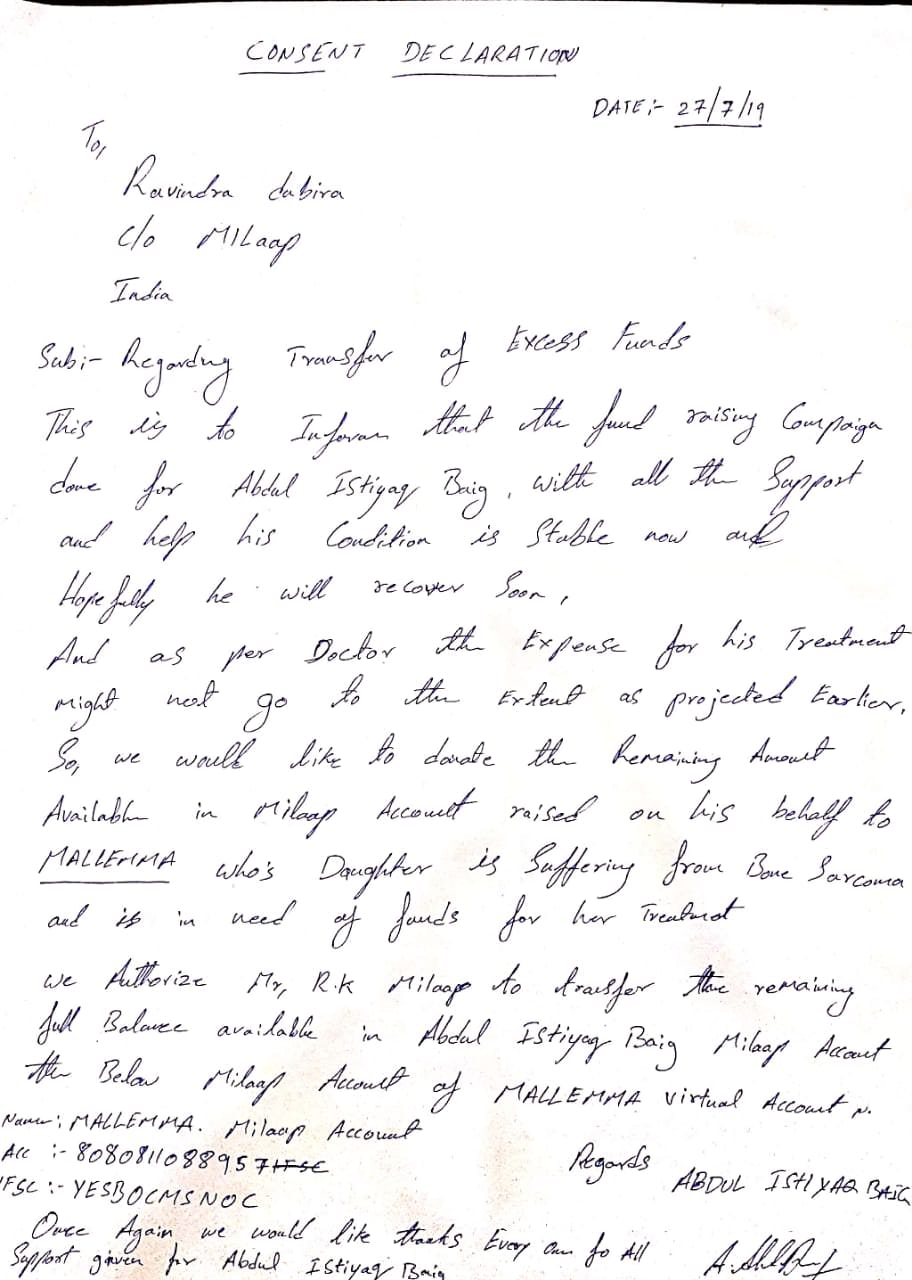 CONSENT DECLARATION
DATE:- 27/7/19
To,
Ravindra dabira
C/o MILaap
India
Sub:- Regarding Transfer of Excess Funds
This is to Inform that the fund raising Campaign
done for Abdul IStiyaq Baig, with all the Support
and help his Condition is Stable now and
Hopefully he will recover Soon,
And as per Doctor the Expense for his Treatment
might not go to the Extent as projected Earlier,
So, we would like to donate the Remaining Amount
Available in Milaap Account raised on his behalf to
MALLEMMA who's Daughter is Suffering from Bone Sarcoma
and is in need of funds for her Treatment
we Authorize Mr, R.K Milaap to transfer the remaining
full Balance available in Abdul IStiyaq Baig Milaap Account
the Below Milaap Account of MALLEMMA virtual Account N.
Name: MALLEMMA. Milaap Account
Acc :- 8080811088957 IFSC
IFSC :- YESB0CMSNOC
Regards
ABDUL ISTIYAQ BAIG
Once Again we would like thanks Every one fo All
Support given for Abdul IStiyaq Baig